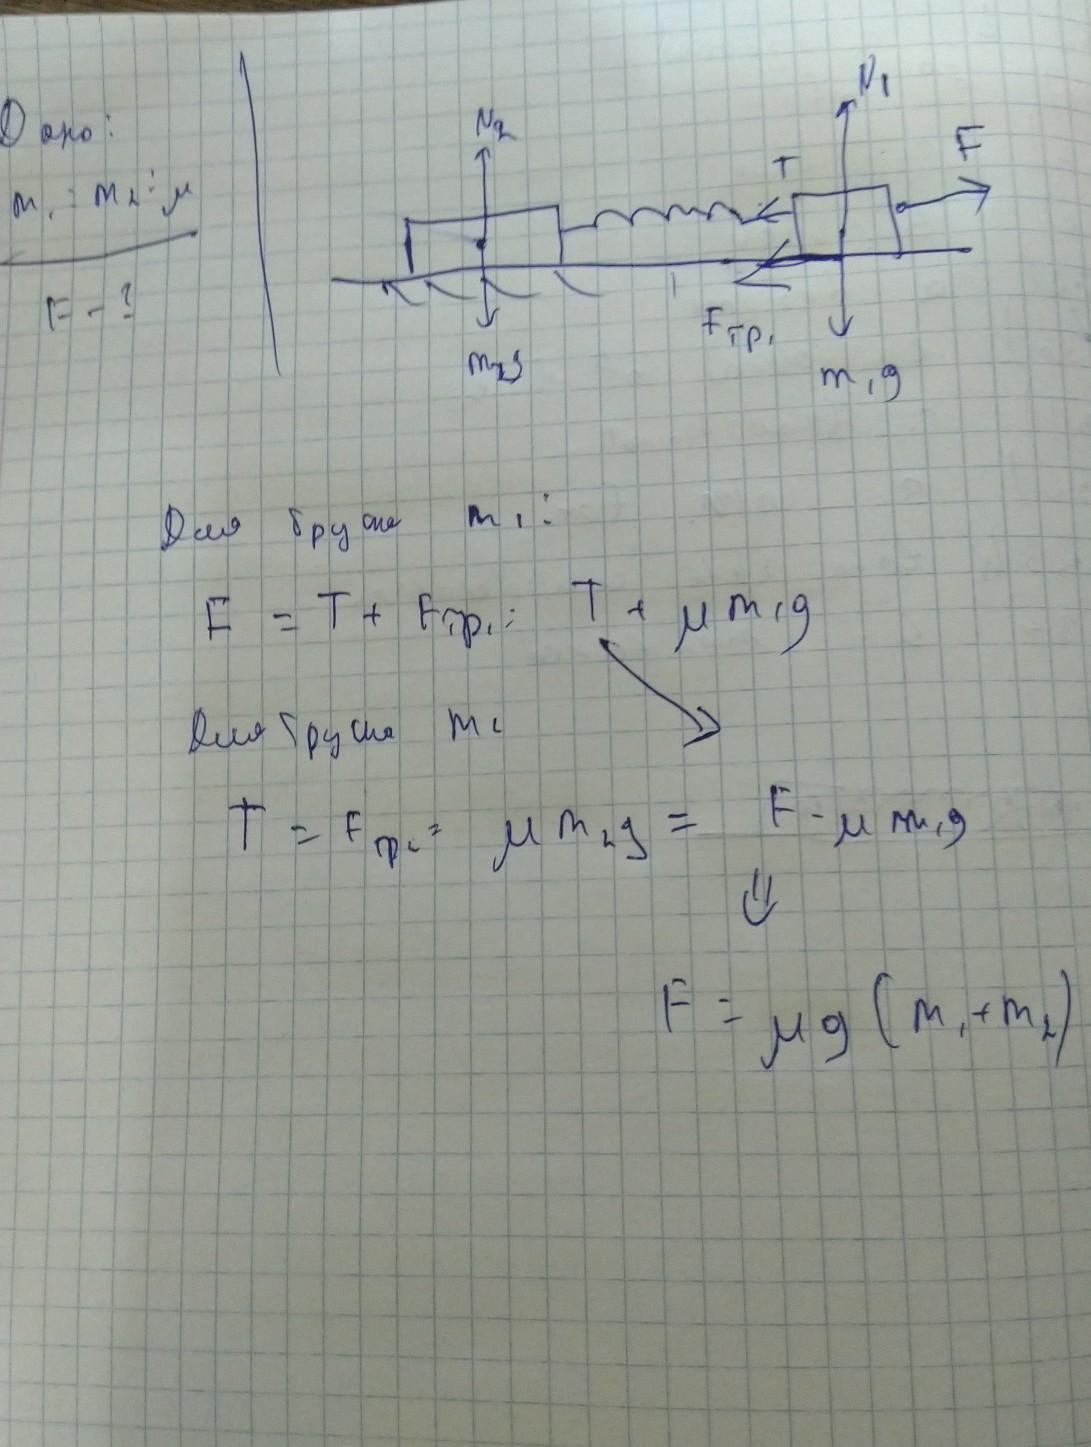 Дано:
m₁; m₂; μ
F - ?
N₂
m₂g
T
N₁
F
Fтр₁
m₁g
Для бруска m₁:
F = T + Fтр₁ = T + μm₁g
Для бруска m₂
T = Fтр₂ = μm₂g = F - μm₁g
⇓
F = μg(m₁+m₂)